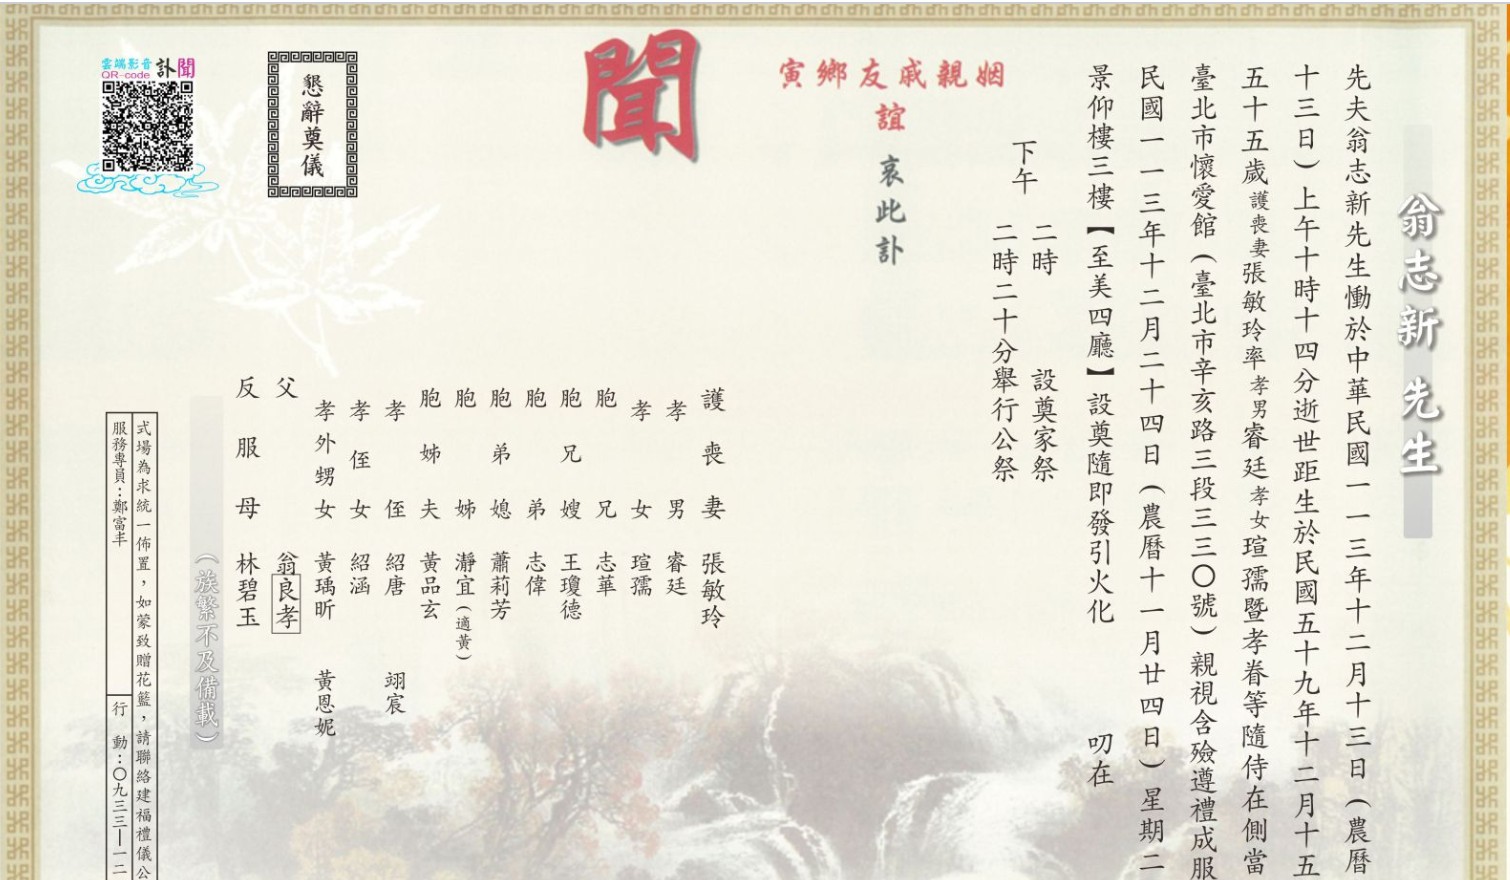 翁志新 先生
先夫翁志新先生慟於中華民國一一三年十二月十三日(農曆
十三日)上午十時十四分逝世距生於民國五十九年十二月十五
五十五歲護喪妻張敏玲率孝男睿廷孝女瑄孺暨孝眷等隨侍在側當
臺北市懷愛館(臺北市辛亥路三段三三〇號)親視含殮遵禮成服
民國一一三年十二月二十四日(農曆十一月廿四日)星期二
景仰樓三樓【至美四廳】設奠隨即發引火化 叨在
下午
二時 設奠家祭
二時二十分舉行公祭
姻親戚友鄉寅
誼
哀此訃
聞
護喪妻 張敏玲
孝男 睿廷
孝女 瑄孺
胞兄 志華
胞兄嫂 王瓊德
胞弟 志偉
胞弟媳 蕭莉芳
胞姊 瀞宜(適黃)
胞姊夫 黃品玄
孝侄 紹唐 翊宸
孝侄女 紹涵
孝外甥女 黃瑀昕 黃恩妮
父 翁良孝
反服母 林碧玉
(族繁不及備載)
懇辭奠儀
雲端影音
QR-code
訃聞
式場為求統一佈置,如蒙致贈花籃,請聯絡建福禮儀公
服務專員:鄭富丰
行動:〇九三三—一二